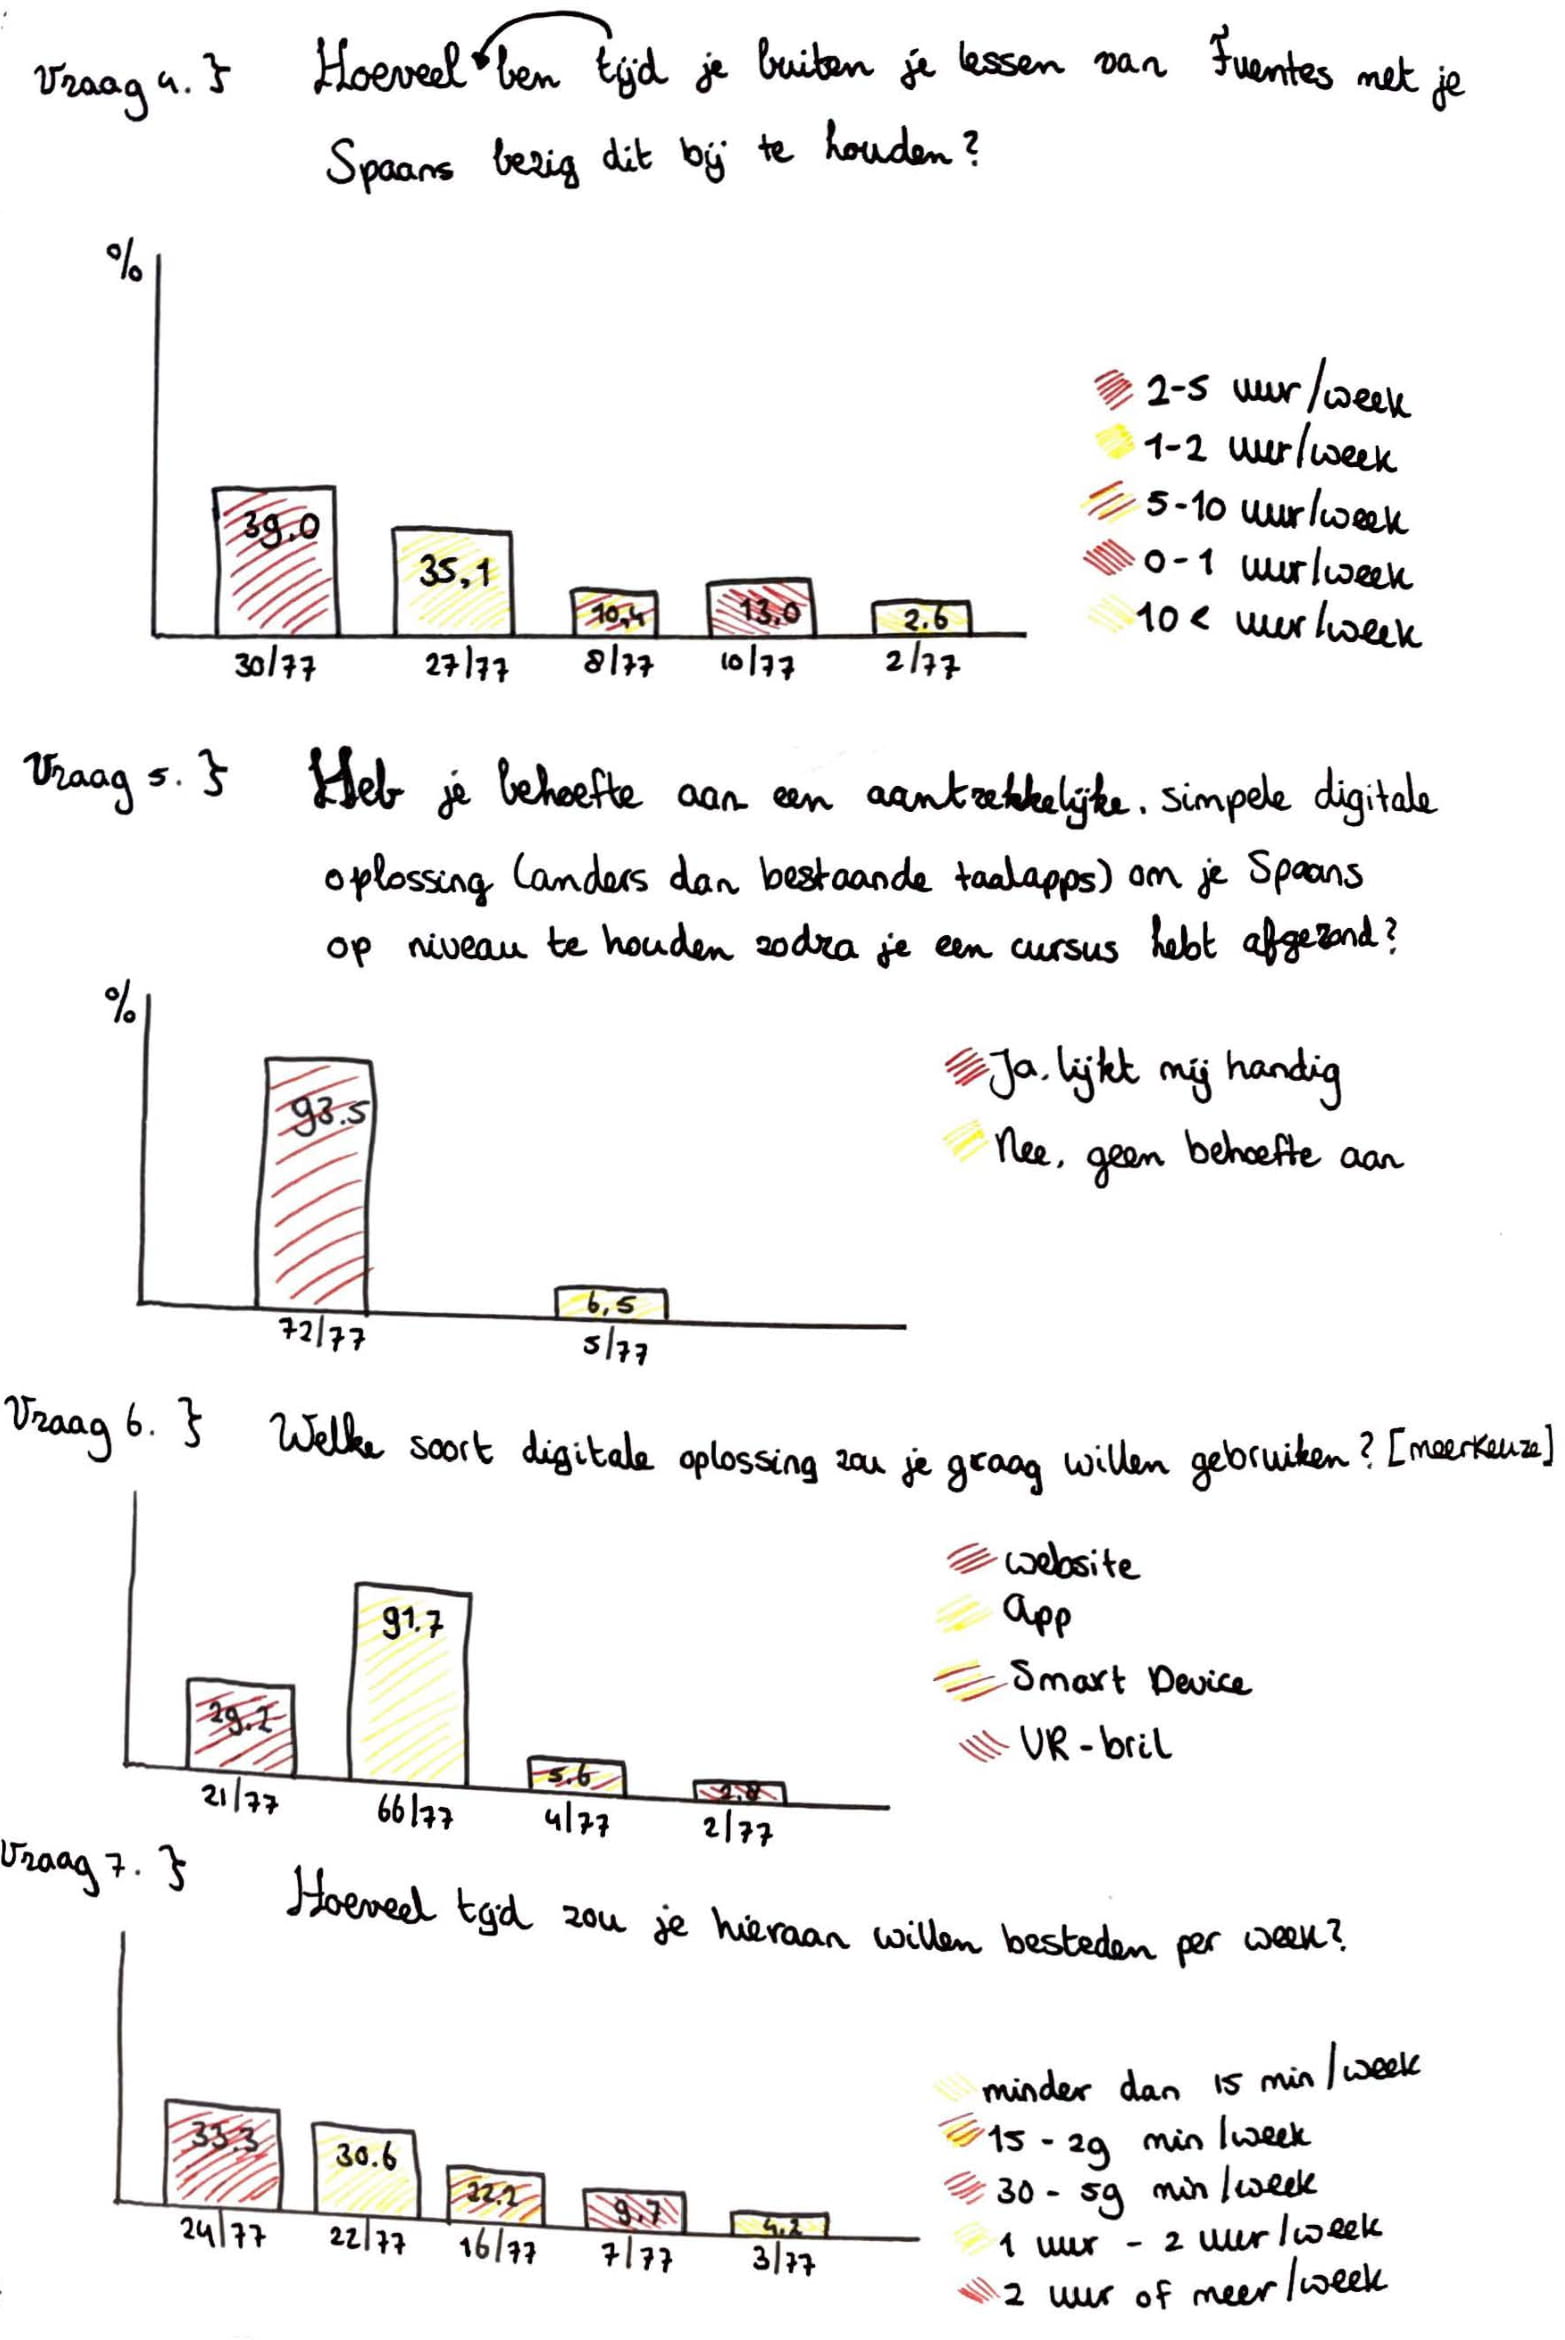 Vraag 4. } Hoeveel ben tijd je buiten je lessen van Fuentes met je
Spaans bezig dit bij te houden?
%
39.0
35,1
10,4
13.0
2.6
30/77
27/77
8/77
10/77
2/77
2-5 uur/week
1-2 uur/week
5-10 uur/week
0-1 uur/week
10 < uur/week
Vraag 5. } Heb je behoefte aan een aantrekkelijke, simpele digitale
oplossing (anders dan bestaande taalapps) om je Spaans
op niveau te houden zodra je een cursus hebt afgerond?
%
93.5
6,5
72/77
5/77
Ja, lijkt mij handig
Nee, geen behoefte aan
Vraag 6. } Welke soort digitale oplossing zou je graag willen gebruiken? [meerkeuze]
29.2
91.7
5.6
2.8
21/77
66/77
4/77
2/77
website
app
Smart Device
VR-bril
Vraag 7. } Hoeveel tijd zou je hieraan willen besteden per week?
33.3
30.6
22.2
9.7
4.2
24/77
22/77
16/77
7/77
3/77
minder dan 15 min/week
15 - 29 min/week
30 - 59 min/week
1 uur - 2 uur/week
2 uur of meer/week